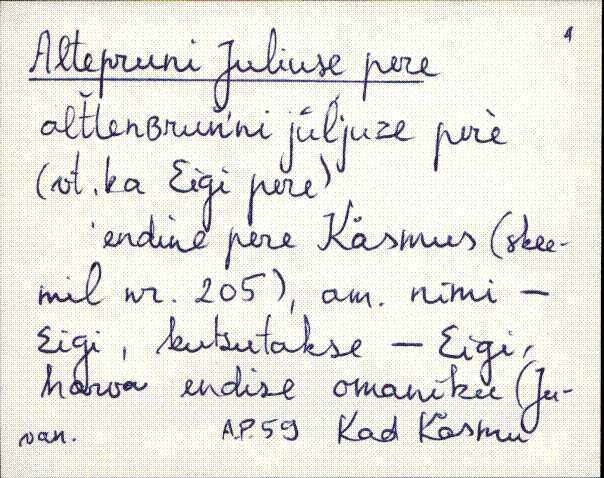 4
Altepruni Juliuse pere
alťtenʙruńni jùljuze perè
(vt. ka Eigi pere)
endine pere Käsmus (skee-
mil nr. 205), am. nimi –
Eigi, kutsutakse – Eigi,
harva endise omaniku (Ju-
van. A.P. 59 Kad Käsmu